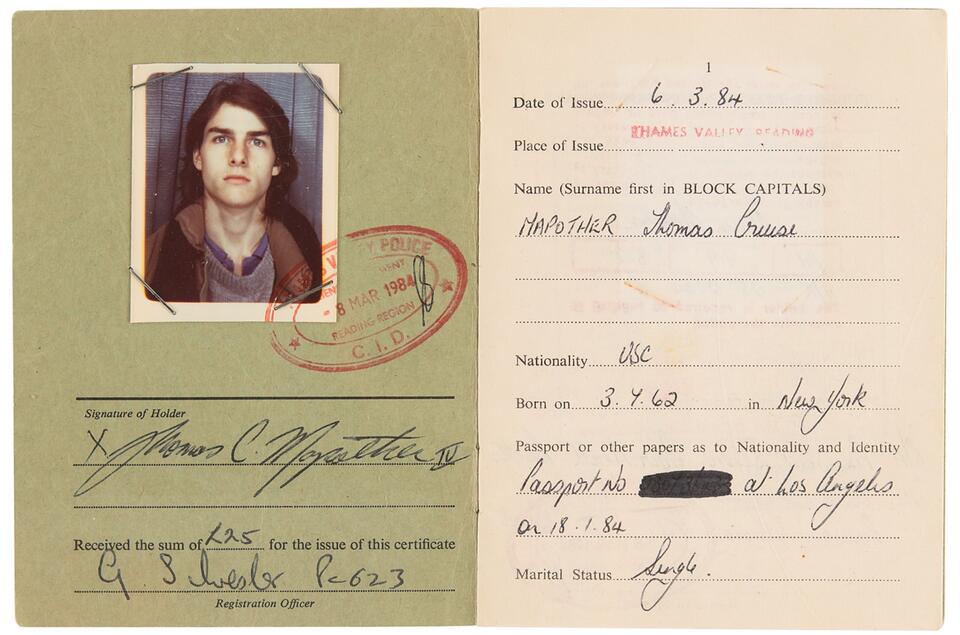 Y POLICE
8 MAR 1984
READING REGION
C.I.D.
Signature of Holder
X Thomas C. Mapother IV
Received the sum of £25 for the issue of this certificate
G. Silvester Pc 623
Registration Officer
1
Date of Issue 6.3.84
THAMES VALLEY READING
Place of Issue
Name (Surname first in BLOCK CAPITALS)
MAPOTHER Thomas Cruise
Nationality USC
Born on 3.7.62 in New York
Passport or other papers as to Nationality and Identity
Passport No at Los Angeles
on 18.1.84
Marital Status Single.